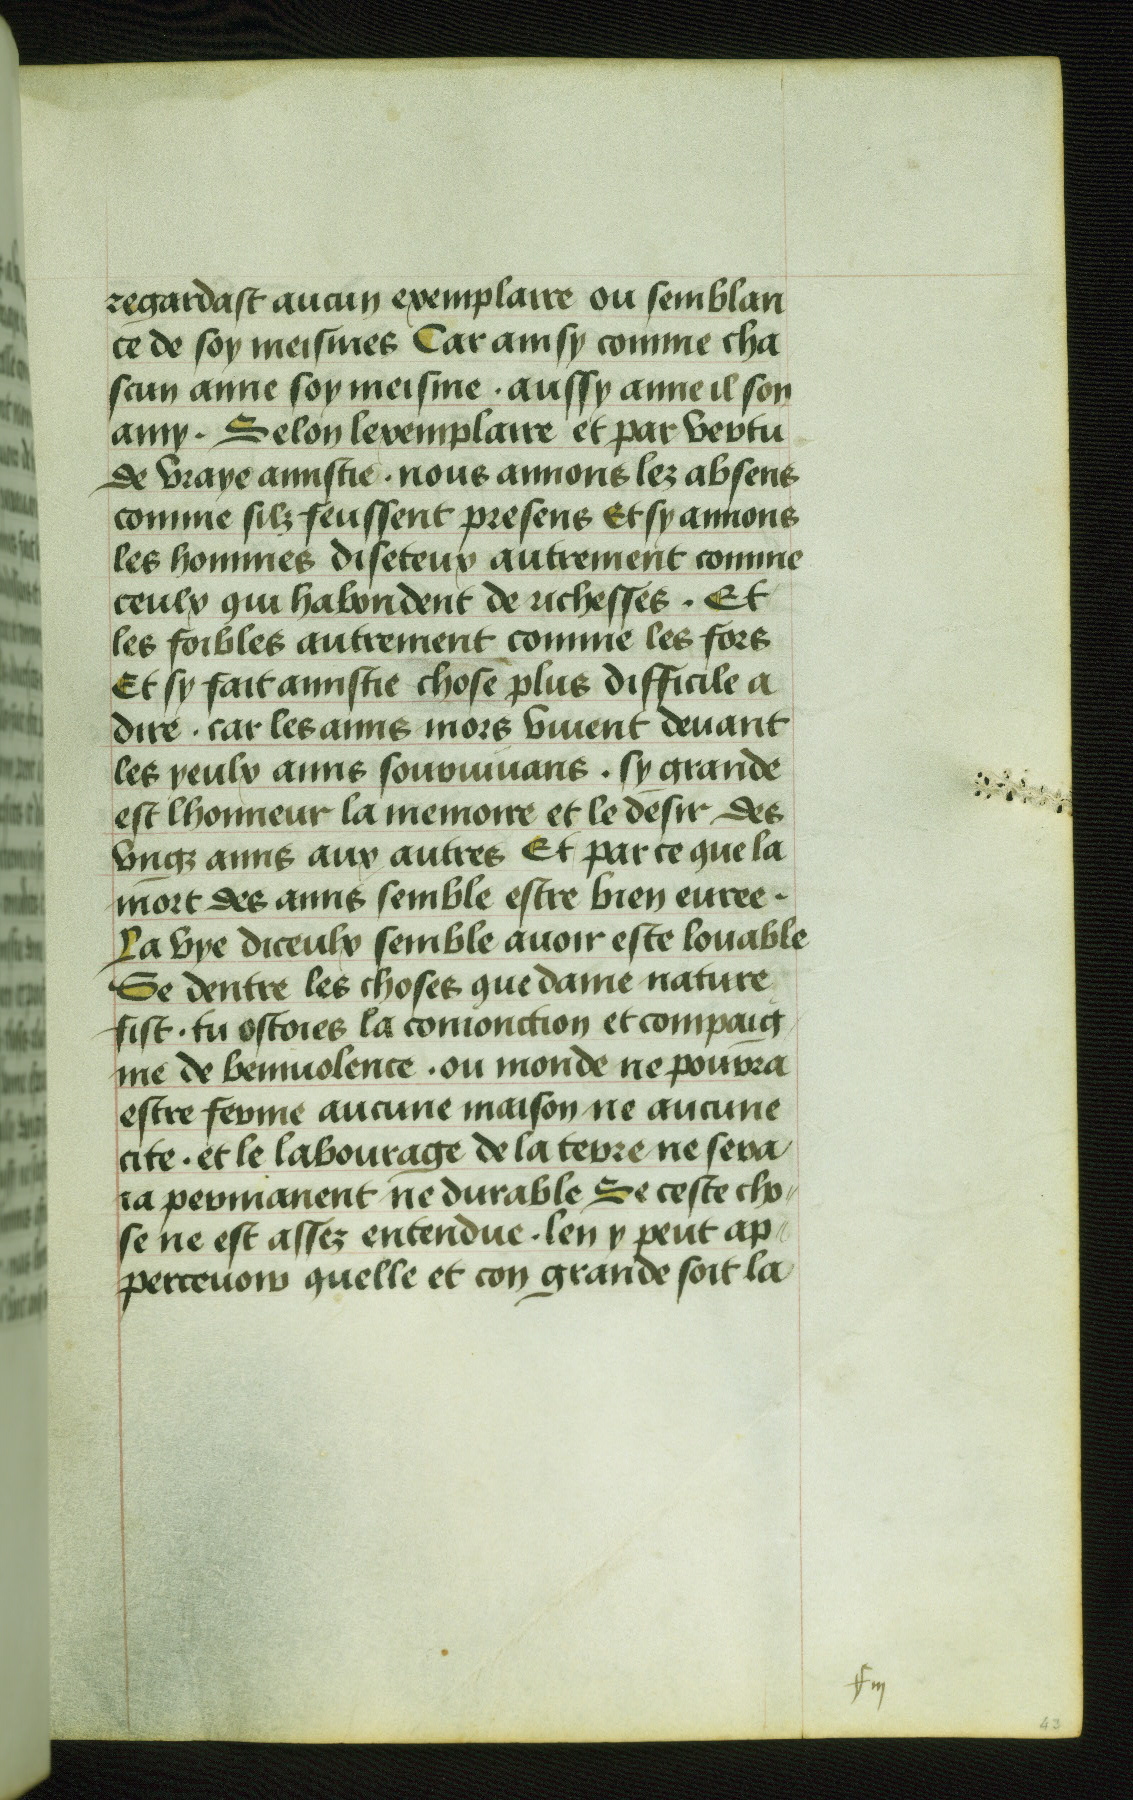 regardast aucun exemplaire ou semblan
ce de soy meismes Car ainsy comme cha
scun ayme soy meisme . aussy ayme il son
amy . Selon lexemplaire et par vertu
de vraye amistie . nous amons lez absens
comme silz feussent presens Et sy amons
les hommes diseteux autrement comme
ceulx qui habondent de richesses . Et
les foibles autrement comme les fors
Et sy fait amistie chose plus difficile a
dire . car les amis mors viuent deuant
les yeulx amis souruiuans . sy grande
est lhonneur la memoire et le desir des
vngz amis aux autres Et par ce que la
mort des amis semble estre bien euree .
La vye diceulx semble auoir este louable
Se dentre les choses que dame nature
fist . tu ostoies la conionction et compaig
nie de beniuolence . ou monde ne pourra
estre ferme aucune maison ne aucune
cite . et le labourage de la terre ne sera
ia permanent ne durable Se ceste cho
se ne est assez entendue . len y peut ap
perceuoir quelle et con grande soit la
43